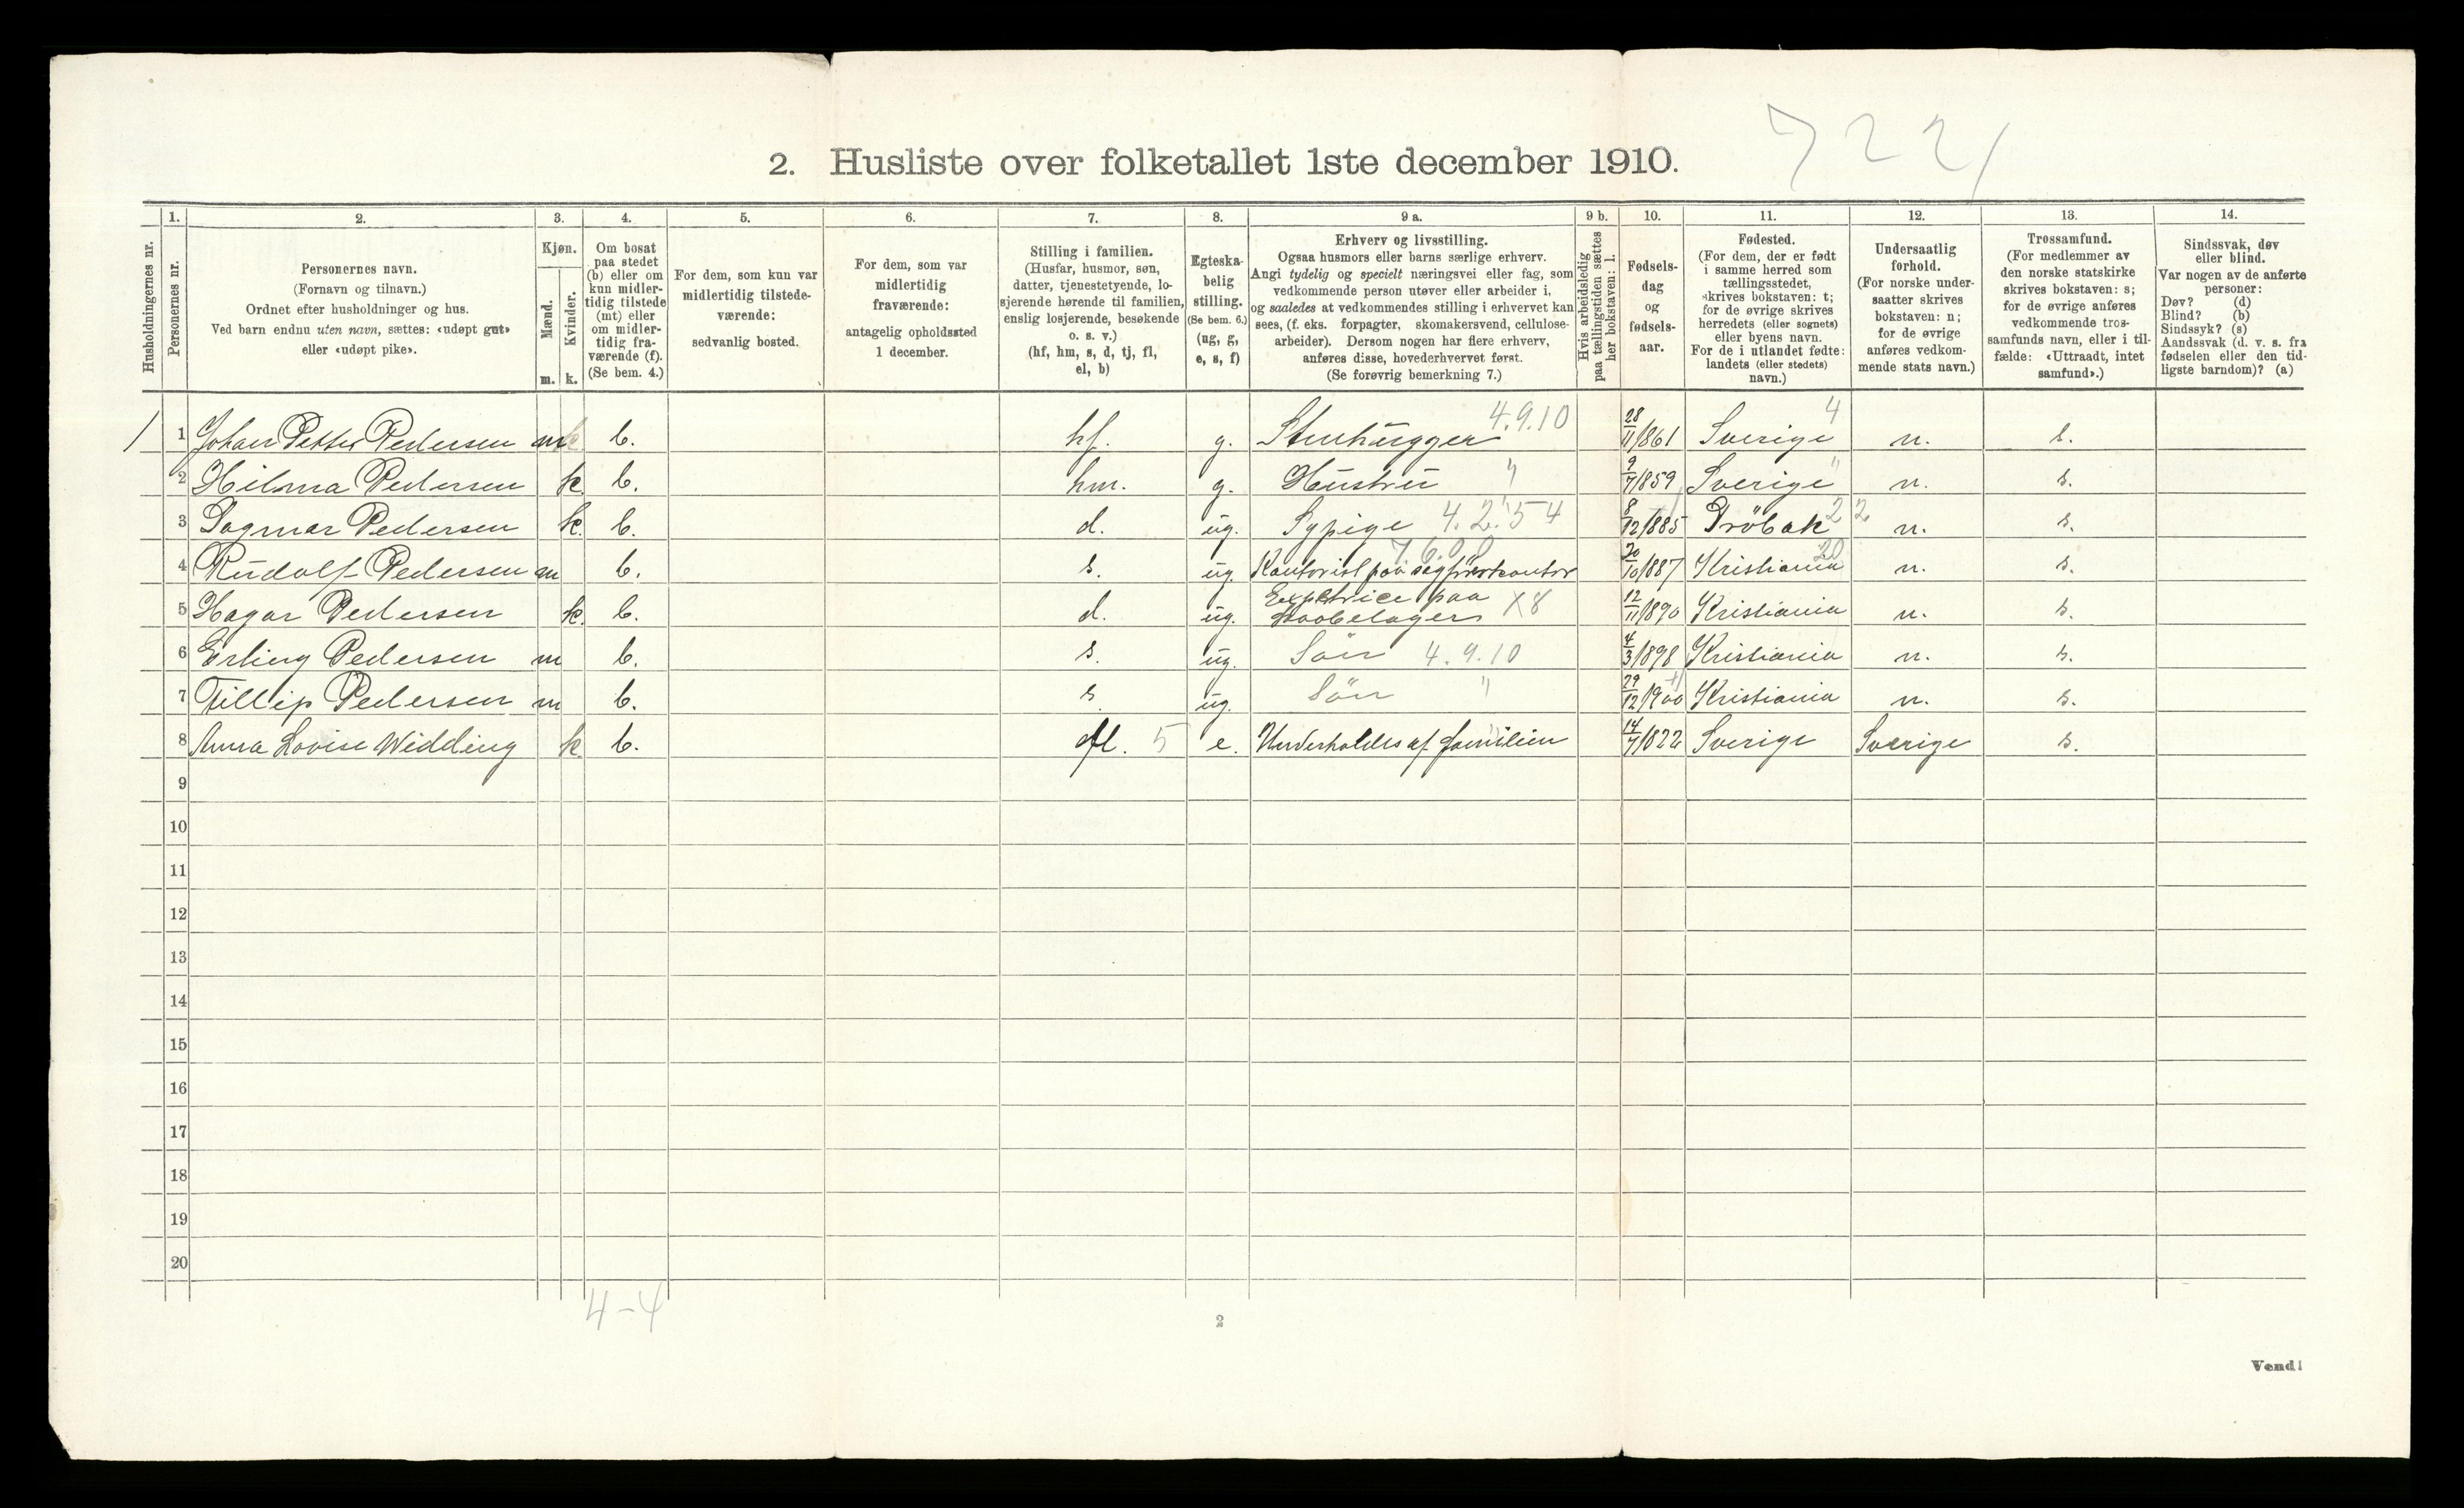 7 2 2 /
2. Husliste over folketallet 1ste december 1910.
Husholdningernes nr.
1.
Personernes nr.
2.
Personernes navn.
(Fornavn og tilnavn.)
Ordnet efter husholdninger og hus.
Ved barn endnu uten navn, sættes: «udøpt gut»
eller «udøpt pike».
3.
Kjøn.
Mænd.
m.
Kvinder.
k.
4.
Om bosat
paa stedet
(b) eller om
kun midler-
tidig tilstede
(mt) eller
om midler-
tidig fra-
værende (f).
(Se bem. 4.)
5.
For dem, som kun var
midlertidig tilstede-
værende:
sedvanlig bosted.
6.
For dem, som var
midlertidig
fraværende:
antagelig opholdssted
1 december.
7.
Stilling i familien.
(Husfar, husmor, søn,
datter, tjenestetyende, lo-
sjerende hørende til familien,
enslig losjerende, besøkende
o. s. v.)
(hf, hm, s, d, tj, fl,
el, b)
8.
Egteska-
belig
stilling.
(Se bem. 6.)
(ug, g,
e, s, f)
9 a.
Erhverv og livsstilling.
Ogsaa husmors eller barns særlige erhverv.
Angi tydelig og specielt næringsvei eller fag, som
vedkommende person utøver eller arbeider i,
og saaledes at vedkommendes stilling i erhvervet kan
sees, (f. eks. forpagter, skomakersvend, cellulose-
arbeider). Dersom nogen har flere erhverv,
anføres disse, hovederhvervet først.
(Se forøvrig bemerkning 7.)
9 b.
Hvis arbeidsledig
paa tællingstiden sættes
her bokstaven: l.
10.
Fødsels-
dag
og
fødsels-
aar.
11.
Fødested.
(For dem, der er født
i samme herred som
tællingsstedet,
skrives bokstaven: t;
for de øvrige skrives
herredets (eller sognets)
eller byens navn.
For de i utlandet fødte:
landets (eller stedets)
navn.)
12.
Undersaatlig
forhold.
(For norske under-
saatter skrives
bokstaven: n;
for de øvrige
anføres vedkom-
mende stats navn.)
13.
Trossamfund.
(For medlemmer av
den norske statskirke
skrives bokstaven: s;
for de øvrige anføres
vedkommende tros-
samfunds navn, eller i til-
fælde: «Uttraadt, intet
samfund».)
14.
Sindssvak, døv
eller blind.
Var nogen av de anførte
personer:
Døv? (d)
Blind? (b)
Sindssyk? (s)
Aandssvak (d. v. s. fra
fødselen eller den tid-
ligste barndom)? (a)
1 1 Johan Petter Pedersen m b. hf. g. Stenhugger 4.9.10 28/11 1861 Sverige 4 n. s.
2 Hilma Pedersen k. b. hm. g. Hustru " 9/7 1859 Sverige " n. s.
3 Dagmar Pedersen k. b. d. ug. Sypige 4.2.54 8/12 1885 Dröbak 22 n. s.
4 Rudolf Pedersen m b. s. ug. Kontorist paa sagförerkontor 7.6.0.0 20/10 1887 Kristiania 20 n. s.
5 Hagar Pedersen k. b. d. ug. Exptrice paa
Kaabelager X8 12/11 1890 Kristiania n. s.
6 Erling Pedersen m b. s. ug. Sön 4.9.10 4/3 1898 Kristiania n. s.
7 Fillip Pedersen m b. s ug. Sön " 29/12 1900 Kristiania n. s.
8 Anna Lovise Widding k b. fl. 5 e. Underholdes af familien 14/7 1822 Sverige Sverige s.
9
10
11
12
13
14
15
16
17
18
19
20
4-4
2
Vend!